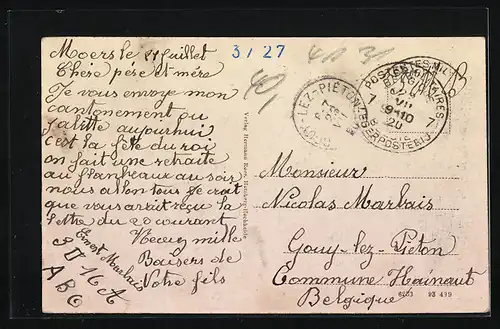 3/27
Moers le 21 juillet
Chère père et mère
Je vous envoye mon
cantonement ou
j'abitte aujourhui
c'est la fête du roi
on fait une retraite
au flambeaux au soir
nous allon tous je croit
que vous avait reçu la
lettre du 20 courant
Recevez mille
Baisers de
Votre fils
Ernest Marlais
9 II 16 A
A B O
Verlag Hermann
GOUY-LEZ-PIÉTON
POSTES MILITAIRES
LEGERPOSTERIJ
7 7
VII
9-10
20
Monsieur
Nicolas Marlais
Gouy-lez-Piéton
Commune Hainaut
Bergique
93 499